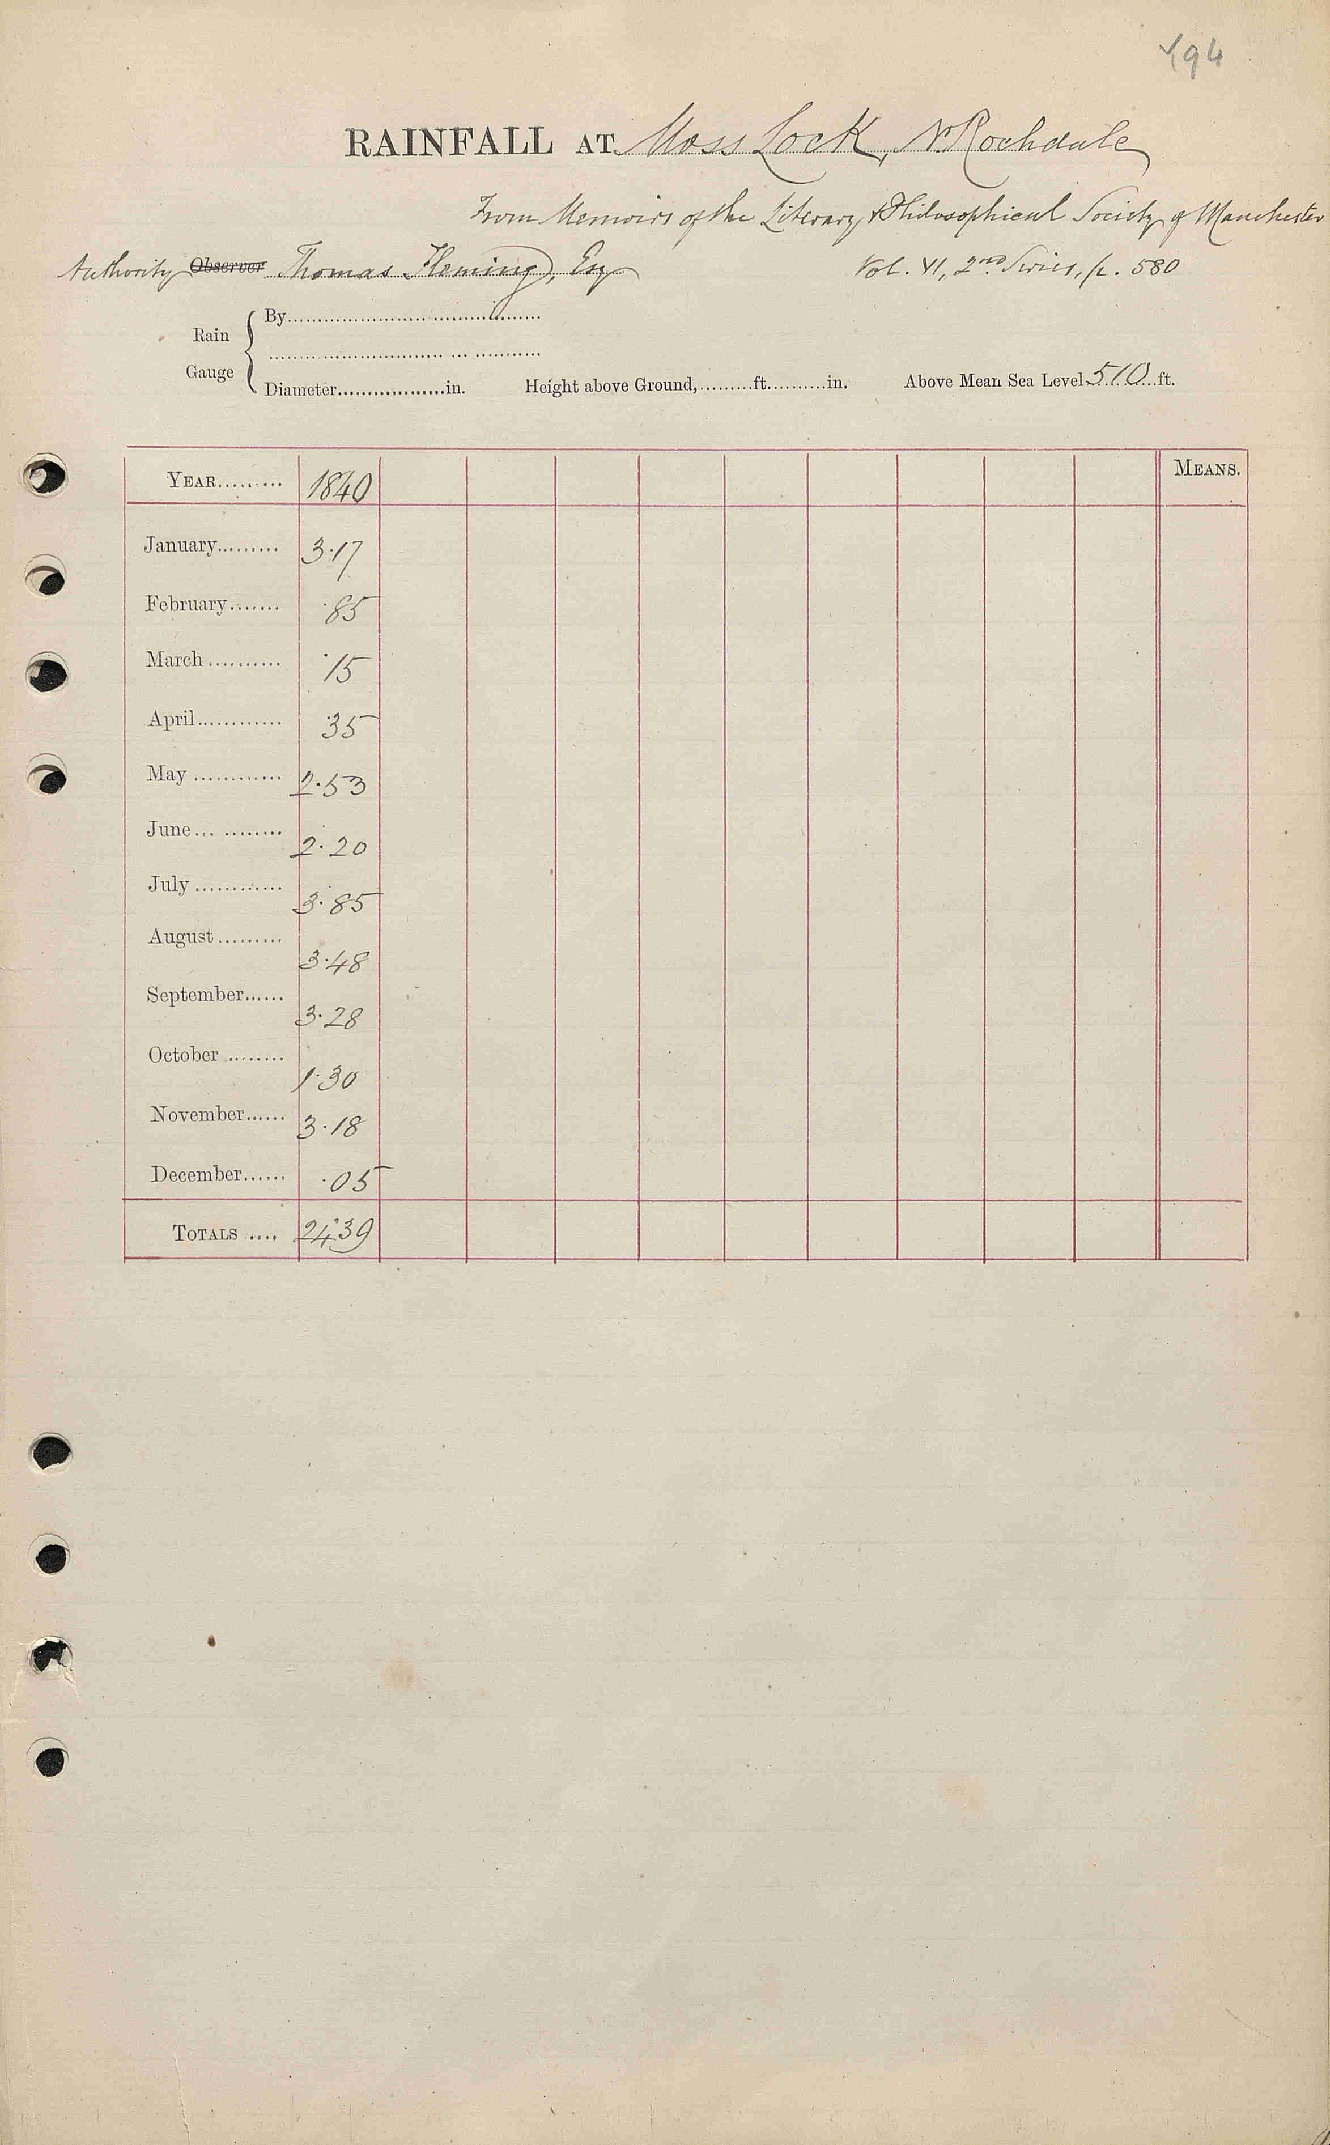 194
RAINFALL AT Moss Lock, Nr Rochdale
From Memoirs of the Literary & Philosophical Society of Manchester
Authority Observer Thomas Fleming, Esq Vol. VI, 2nd Series, p. 580
Rain Gauge { By
Diameter in. Height above Ground, ft. in. Above Mean Sea Level 510 ft.
YEAR 1840 MEANS.
January 3.17
February .85
March .15
April .35
May 2.53
June 2.20
July 3.85
August 3.48
September 3.28
October 1.30
November 3.18
December .05
TOTALS 24.39